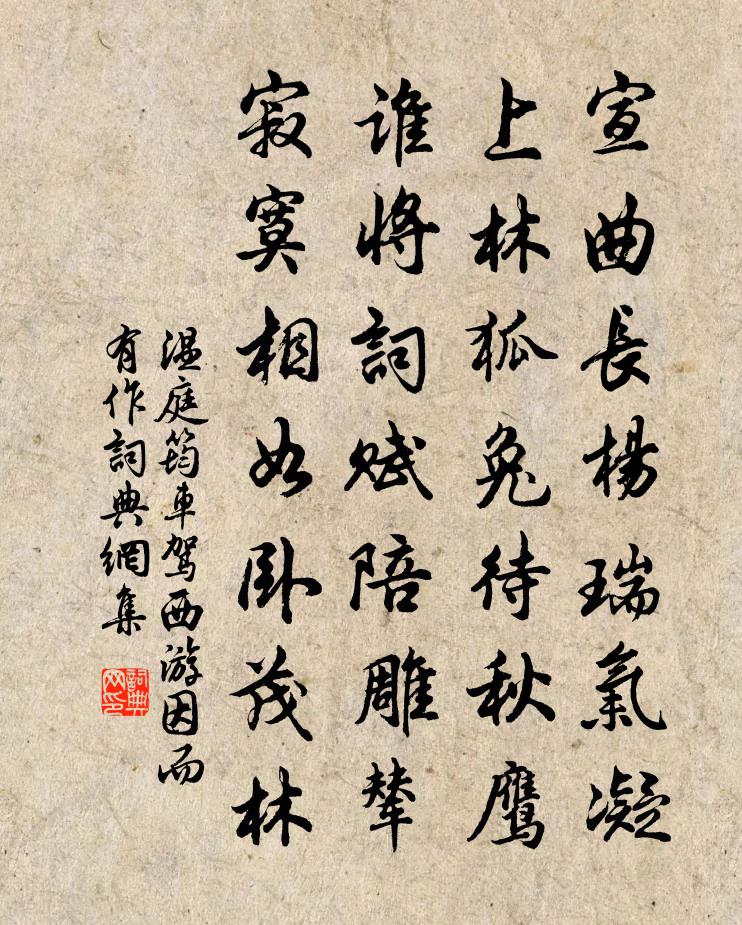 宣曲長楊瑞氣凝
上林狐兔待秋鷹
誰將詞賦陪雕輦
寂寞相如臥茂林
温庭筠車駕西游因而
有作詞典網集
詞典网印